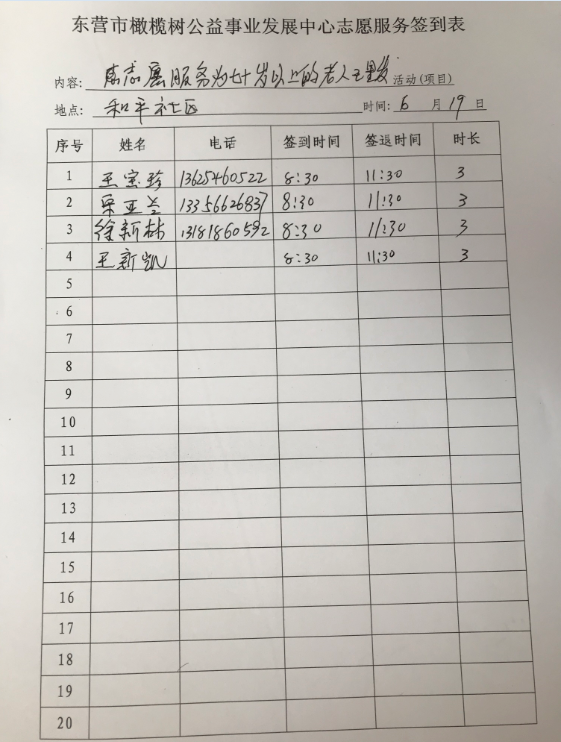 东营市橄榄树公益事业发展中心志愿服务签到表
内容: 志愿服务为七十岁以上的老人 活动(项目)
地点: 和平社区 时间: 6 月 19 日
序号 姓名 电话 签到时间 签退时间 时长
1 王宝珍 13625460522 8:30 11:30 3
2 梁亚兰 13356626837 8:30 11:30 3
3 徐新林 13181860592 8:30 11:30 3
4 王新凯 8:30 11:30 3
5
6
7
8
9
10
11
12
13
14
15
16
17
18
19
20